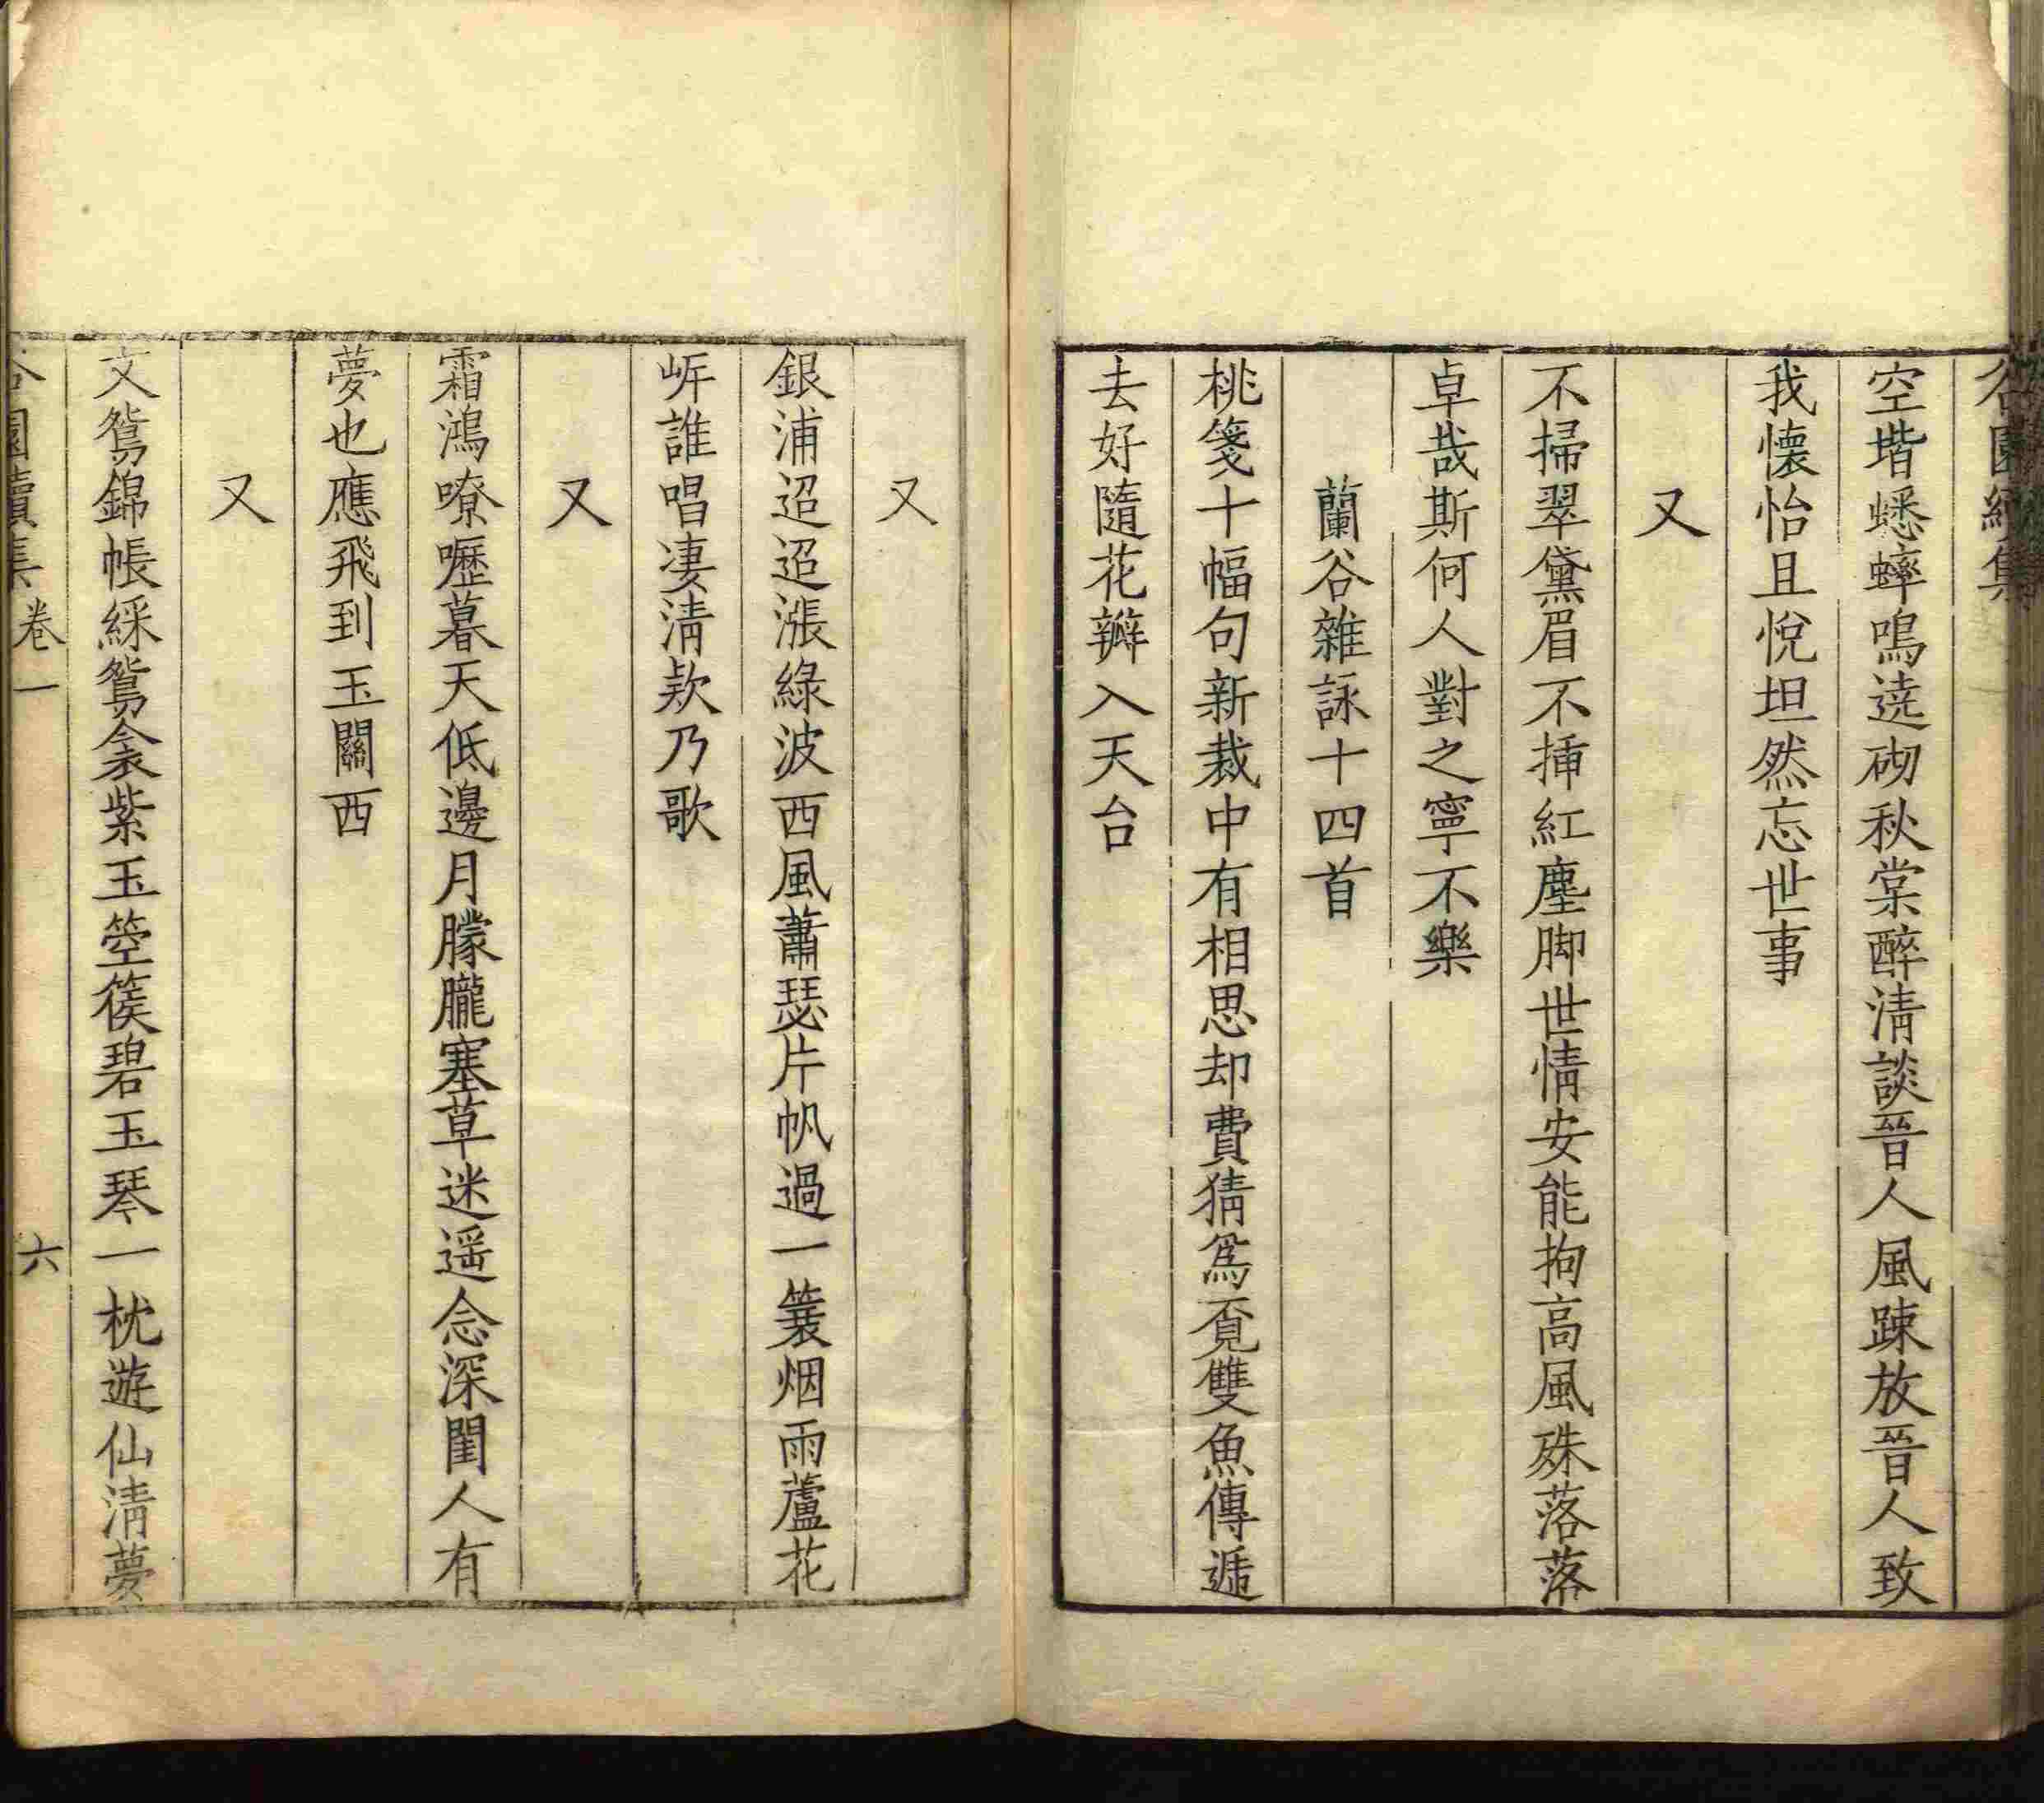 谷園續集
空堦蟋蟀鳴遶砌秋棠醉清談晉人風踈放晉人致
我懷怡且悅坦然忘世事
又
不掃翠黛眉不揷紅塵脚世情安能拘高風殊落落
卓哉斯何人對之寧不樂
蘭谷雜詠十四首
桃箋十幅句新裁中有相思却費猜爲覔雙魚傳遞
去好隨花瓣入天台
又
銀浦迢迢漲綠波西風蕭瑟片帆過一簑烟雨蘆花
㟁誰唱凄清欵乃歌
又
霜鴻嘹嚦暮天低邊月朦朧塞草迷遥念深閨人有
夢也應飛到玉關西
又
文鴛錦帳綵鴛衾紫玉箜篌碧玉琴一枕遊仙清夢
谷園續集 卷一 六